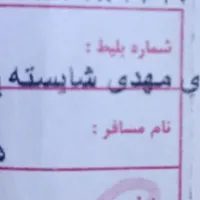 شماره بلیط :
ی مهدی شایسته
نام مسافر :